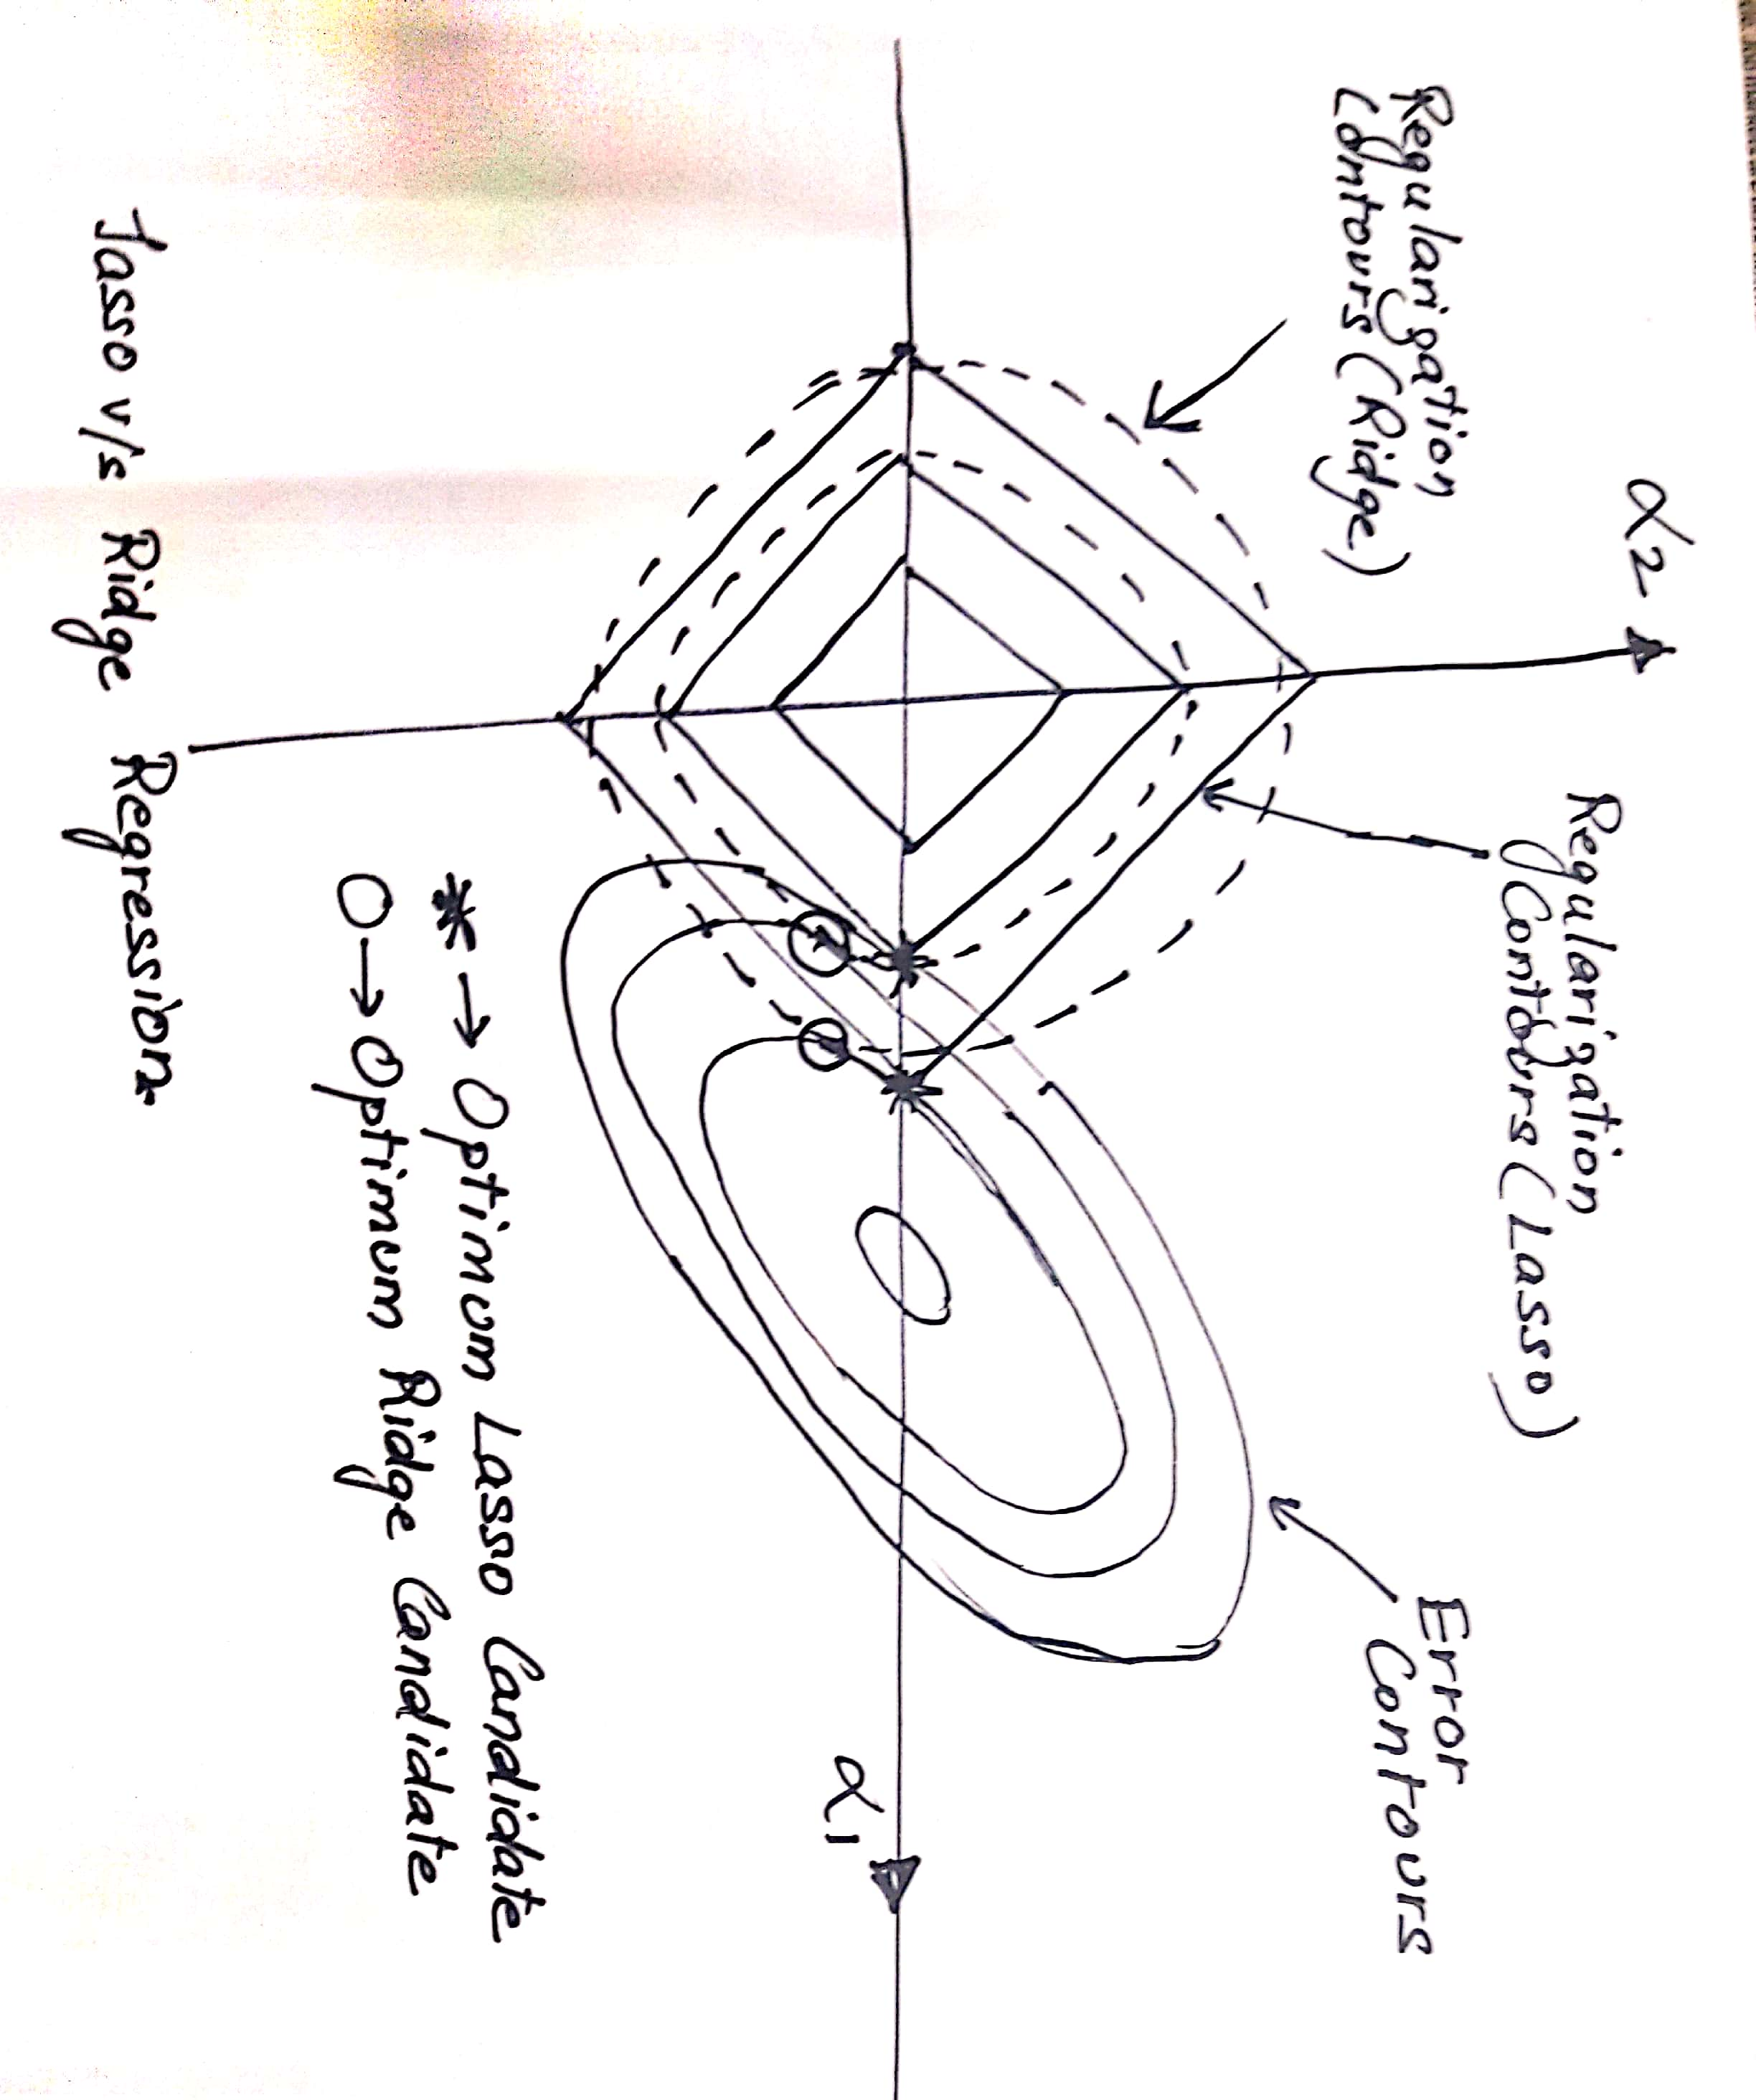 α2
Regularization
Contours (Ridge)
Regularization
Contours (Lasso)
Error
Contours
α1
* → Optimum Lasso Candidate
O → Optimum Ridge Candidate
Lasso v/s Ridge Regression